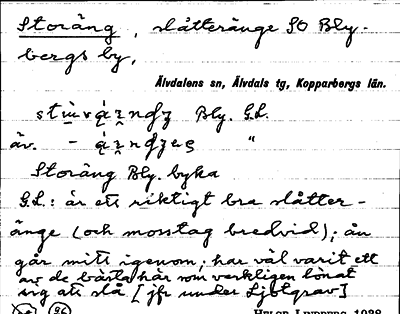 Storäng, slåtteränge SO Bly-
bergs by,
Älvdalens sn, Älvdals tg, Kopparbergs län.
Bly. G.L.
äv. - "
Storäng Bly. byka
G.L.: är ett riktigt bra slåtter-
änge (och mosstag bredvid); ån
går mitt igenom; har väl varit ett
av de bästa här som verkligen lönat
sig att slå [jfr under Ljotgrav]
96